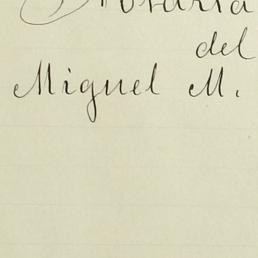 Notaria
del
Miguel M.